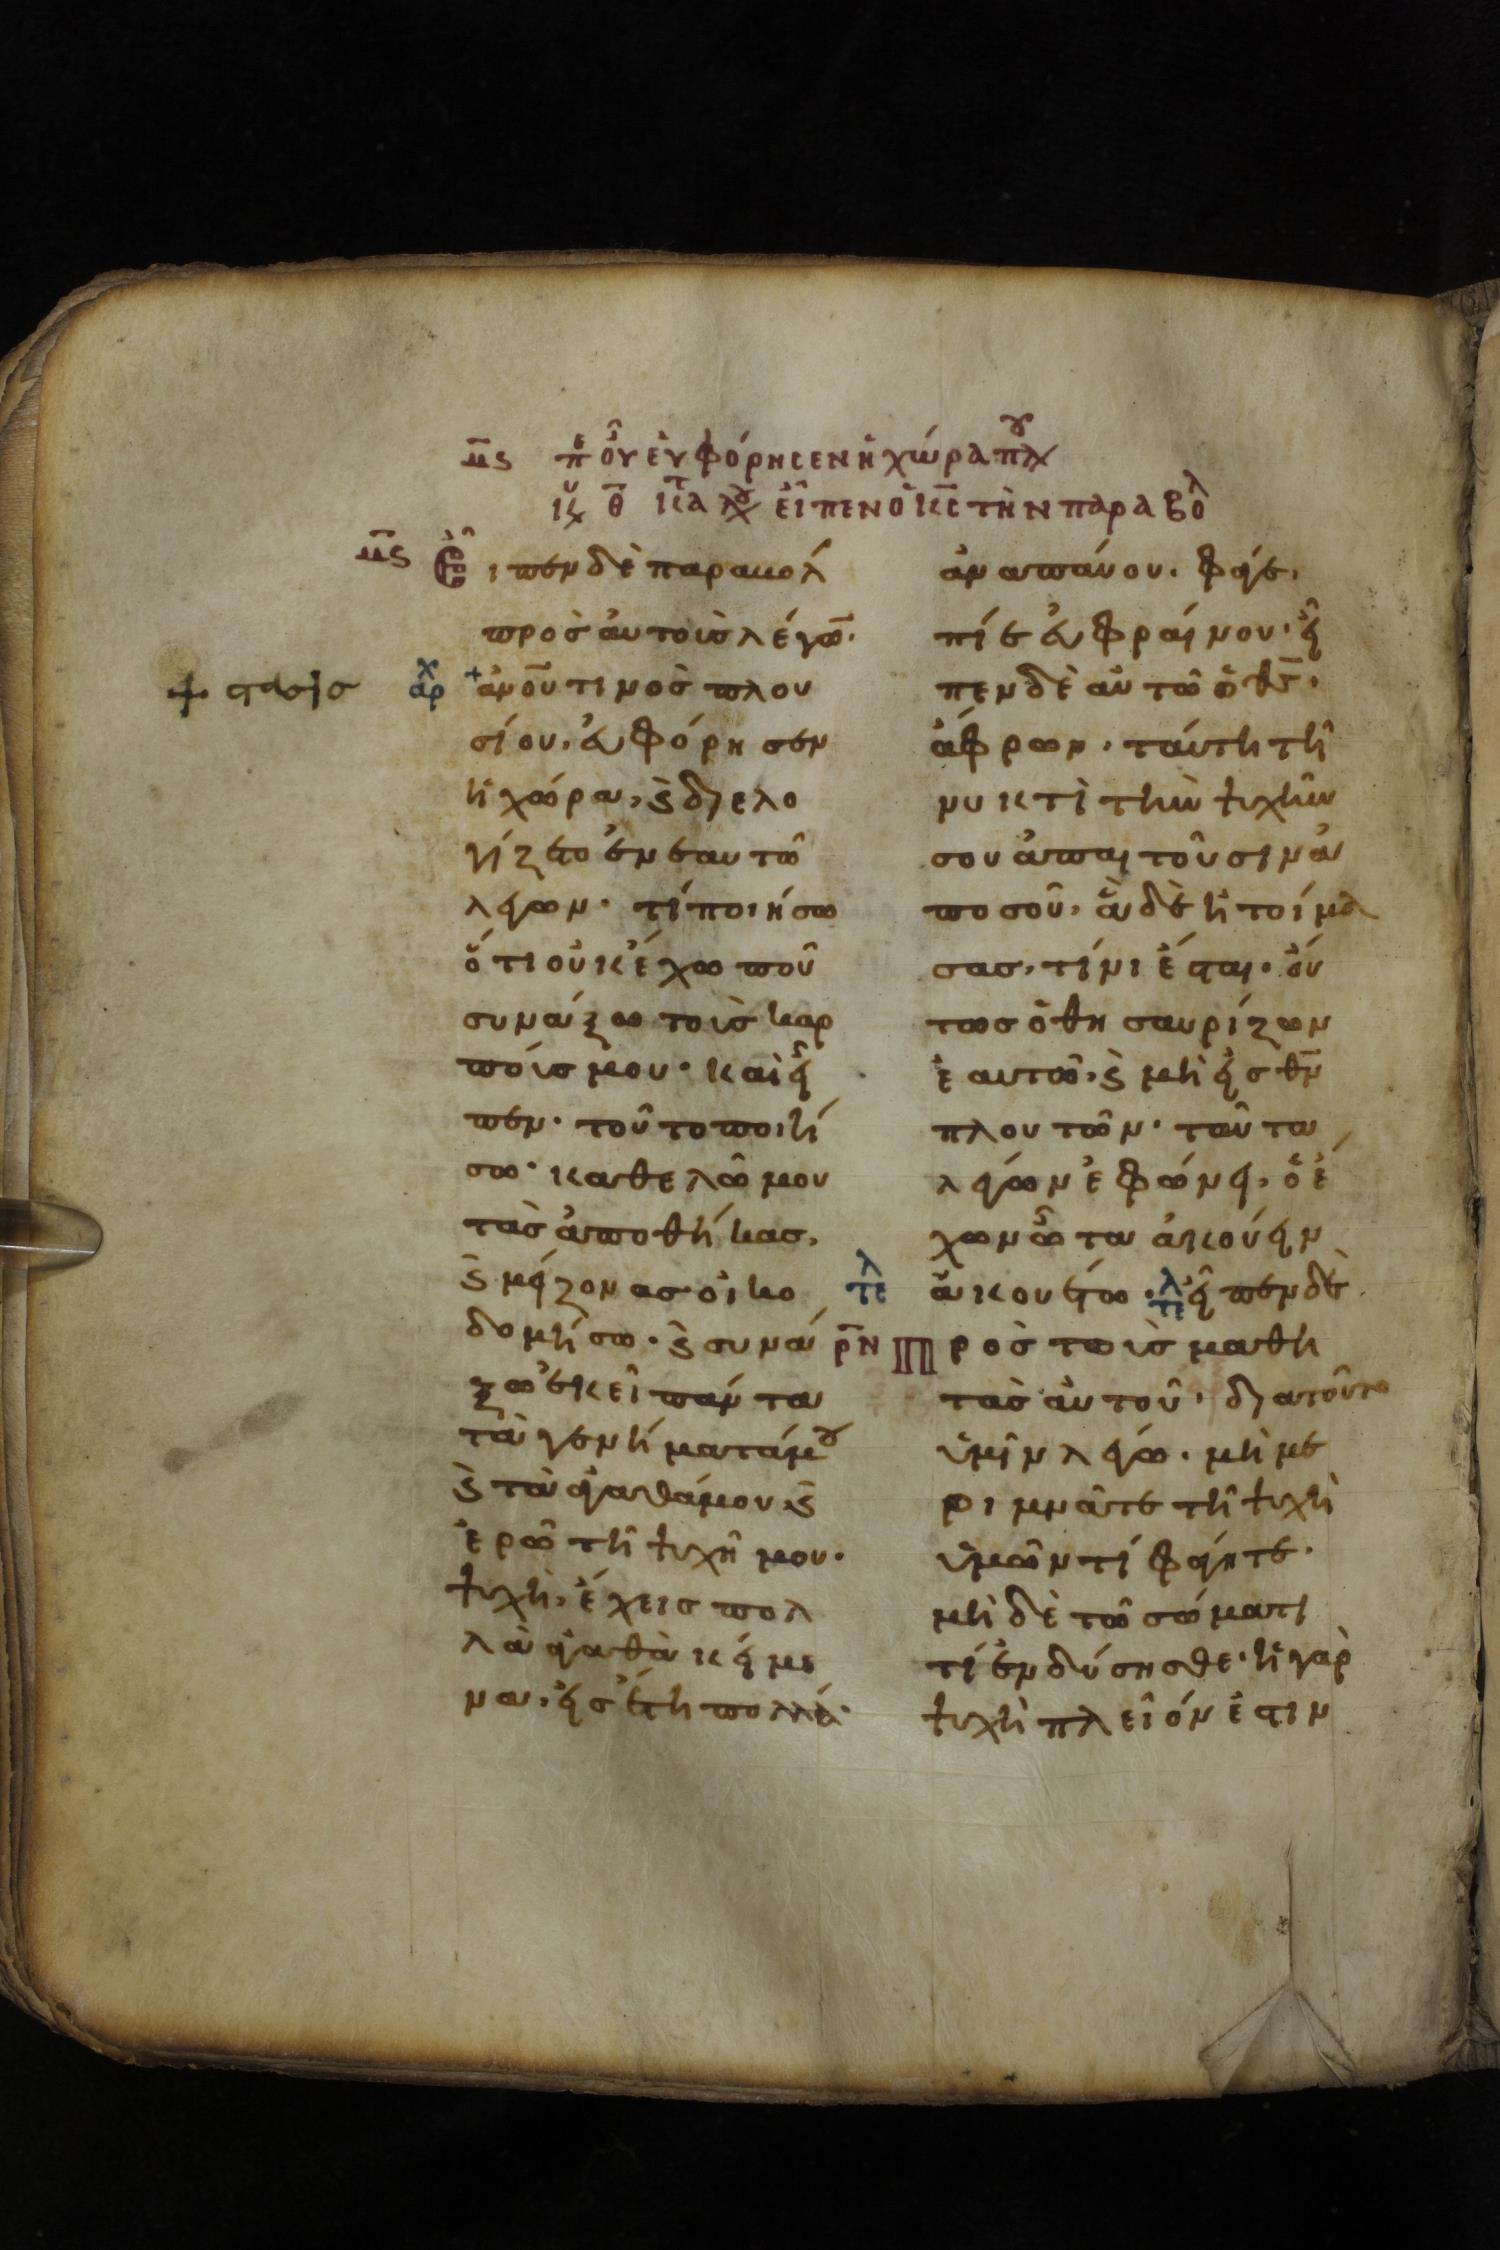 μϛ πε οὗ εὐφόρησεν ἡ χώρα πλου
κυ θ κτ λου εἶπεν ὁ κς τὴν παραβολ
μϛ Εἶπεν δὲ παραβολ
πρὸς αὐτοὺς λέγων·
+ στάσις αρχ + ἀνου τινὸς πλου
σίου, εὐφόρησεν
ἡ χώρα, ϛ διελο
γίζετο ἐν ἑαυτῶ
λέγων· τί ποιήσω
ὅτι οὐκ ἔχω ποῦ
συνάξω τοὺς καρ
πούς μου· καὶ εἶ
πεν· τοῦτο ποιή
σω· καθελῶ μου
τὰς ἀποθήκας,
ϛ μείζονας οἰκο
δομήσω· ϛ συνά
ξω ἐκεῖ πάντα
τὰ γενήματά μου
ϛ τὰ ἀγαθά μου ϛ
ἐρῶ τῆ ψυχῆ μου·
ψυχὴ, ἔχεις πολ
λὰ ἀγαθὰ κείμε
να, εἰς ἔτη πολλά·
ἀναπαύου, φάγε,
πίε εὐφραίνου· εἶ
πεν δὲ αὐτῶ ὁ θς·
ἄφρων, ταύτη τῆ
νυκτὶ τὴν ψυχήν
σου ἀπαιτοῦσιν ἀ
πὸ σοῦ, ἃ δὲ ἡτοίμα
σας, τίνι ἔσται· οὕ
τως ὁ θησαυρίζων
ἑαυτῶ, ϛ μὴ εἰς θν
πλουτῶν· ταῦτα
λέγων ἐφώνει, ὁ ἔ
χων ὦτα ἀκούειν
τελ ἀκουέτω· τελ εἶπεν δὲ
ρν Πρὸς τοὺς μαθη
τὰς αὐτοῦ· διατοῦτο
ὑμῖν λέγω· μὴ με
ριμνᾶτε τῆ ψυχὴ
ὑμῶν τί φάγητε·
μὴ δὲ τῶ σώματι
τί ἐνδύσησθε· ἡ γὰρ
ψυχὴ πλεῖόν ἐστιν